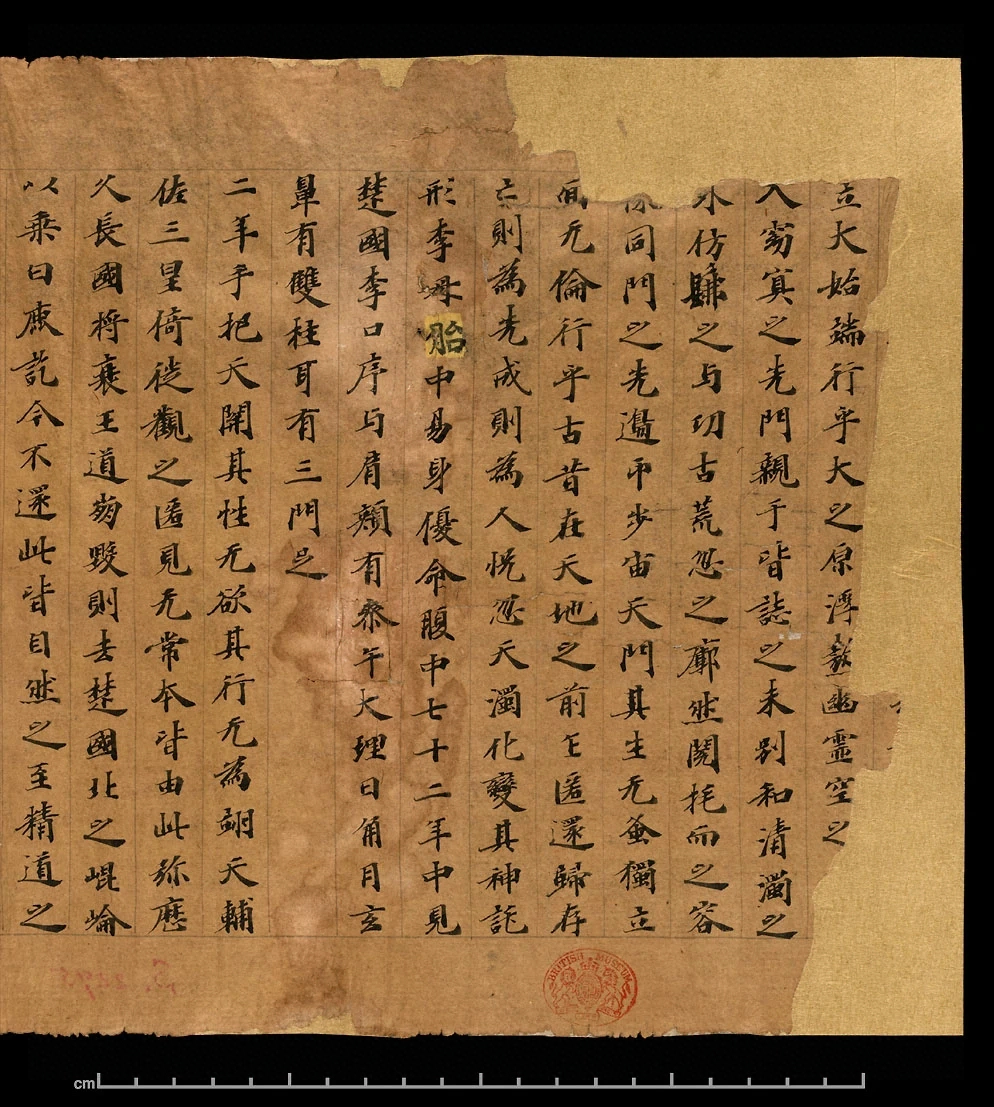 立大始端行乎大之原浮熬幽靈空之
入窈冥之先門親乎皆誌之未別和清濁之
仿之与功古荒忽之廓然閱托而之容
同門之先邊帀步宙天門其生无蚤獨立
而无倫行乎古昔在天地之前乍匿還歸存
亡則為先成則為人恍忽天濁化變其神託
形李母胎中易身優命腹中七十二年中見
楚國李口序与肩頰有參午大理日角月玄
鼻有雙柱耳有三門足
二年手把天開其性无欲其行无為翊天輔
佐三皇倚徙觀之匿見无常本皆由此弥歷
久長國將衰王道毀則去楚國北之崐崘
以乘白鹿訖今不還此皆自然之至精道之
BRITISH MUSEUM
cm